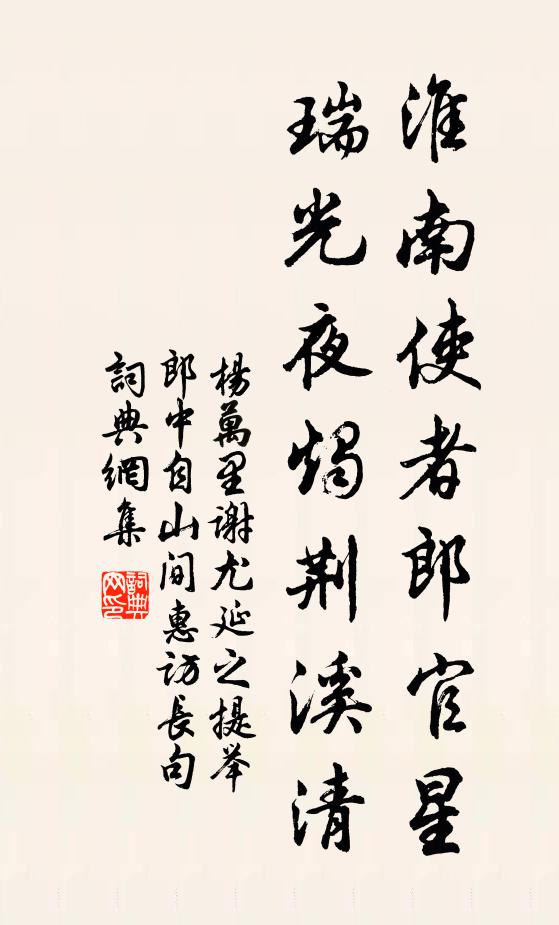 淮南使者郎官星
瑞光夜燭荆溪清
楊萬里謝尤延之提举
郎中自山间惠访長句
詞典網集
詞典网印